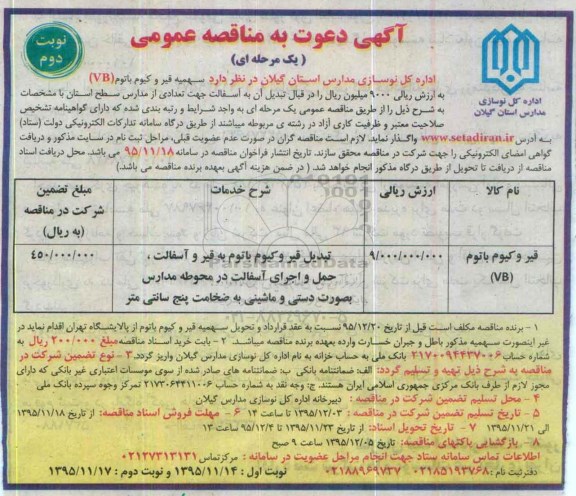 آگهی دعوت به مناقصه عمومی
( یک مرحله ای)
نوبت
دوم
اداره کل نوسازی
مدارس استان گیلان
اداره کل نوسازی مدارس استان گیلان در نظر دارد سهمیه قیر و کیوم باتوم (VB)
به ارزش ریالی ۹۰۰۰ میلیون ریال را در قبال تبدیل آن به آسفالت جهت تعدادی از مدارس سطح استان با مشخصات
به شرح ذیل را از طریق مناقصه عمومی یک مرحله ای به واجد شرایط و رتبه بندی شده که دارای گواهینامه تشخیص
صلاحیت معتبر و ظرفیت کاری آزاد در رشته ی مربوطه میباشند از طریق درگاه سامانه تدارکات الکترونیکی دولت (ستاد)
به آدرس www.setadiran.ir واگذار نماید. لازم است مناقصه گران در صورت عدم عضویت قبلی، مراحل ثبت نام در سایت مذکور و دریافت
گواهی امضای الکترونیکی را جهت شرکت در مناقصه محقق سازند. تاریخ انتشار فراخوان مناقصه در سامانه ۹۵/۱۱/۱۸ می باشد. محل دریافت اسناد
مناقصه از دریافت تا تحویل از طریق درگاه مذکور انجام خواهد شد. ( در ضمن هزینه آگهی بعهده برنده مناقصه می باشد.)
نام کالا
ارزش ریالی
شرح خدمات
مبلغ تضمین
شرکت در مناقصه
(به ریال)
قیر و کیوم باتوم
(VB)
۹/۰۰۰/۰۰۰/۰۰۰
تبدیل قیر و کیوم باتوم به قیر و آسفالت ،
حمل و اجرای آسفالت در محوطه مدارس
بصورت دستی و ماشینی به ضخامت پنج سانتی متر
۴۵۰/۰۰۰/۰۰۰
ParsNamadData
۱ - برنده مناقصه مکلف است قبل از تاریخ ۹۵/۱۲/۲۰ نسبت به عقد قرارداد و تحویل سهمیه قیر و کیوم باتوم از پالایشگاه تهران اقدام نماید در
غیر اینصورت سهمیه مذکور باطل و جبران خسارت وارده بعهده برنده مناقصه میباشد. ۲ - بابت خرید اسناد مناقصه مبلغ ۲۰۰/۰۰۰ ریال به
شماره حساب ۲۱۷۰۰۹۴۴۳۷۰۰۶ بانک ملی به حساب خزانه به نام اداره کل نوسازی مدارس گیلان واریز گردد. ۳ - نوع تضمین شرکت در
مناقصه به شرح ذیل تهیه و تسلیم گردد: الف: ضمانتنامه بانکی ب: ضمانتنامه های صادر شده از سوی موسسات اعتباری غیر بانکی که دارای
مجوز لازم از طرف بانک مرکزی جمهوری اسلامی ایران هستند. ج: وجه نقد به شماره حساب ۲۱۷۳۰۶۴۴۱۱۰۰۶ تمرکز وجوه سپرده بانک ملی
۴ - محل تسلیم تضمین شرکت در مناقصه : دبیرخانه اداره کل نوسازی مدارس گیلان
۵ - تاریخ تسلیم تضمین شرکت در مناقصه : ۱۳۹۵/۱۲/۰۳ تا ساعت ۱۴ ۶ - مهلت فروش اسناد مناقصه: از تاریخ ۱۳۹۵/۱۱/۱۸
الی ۱۳۹۵/۱۱/۲۱ ۷ - تاریخ تحویل اسناد: از تاریخ ۱۳۹۵/۱۱/۲۳ تا ۹۵/۱۲/۴ ساعت ۱۳
۸ - بازگشایی پاکتهای مناقصه: تاریخ ۱۳۹۵/۱۲/۰۵ ساعت ۹ صبح
اطلاعات تماس سامانه ستاد جهت انجام مراحل عضویت در سامانه : مرکز تماس ۰۲۱۲۷۳۱۳۱۳۱
دفتر ثبت نام : ۰۲۱۸۵۱۹۳۷۶۸ - ۰۲۱۸۸۹۶۹۷۳۷ نوبت اول : ۱۳۹۵/۱۱/۱۴ و نوبت دوم : ۱۳۹۵/۱۱/۱۷